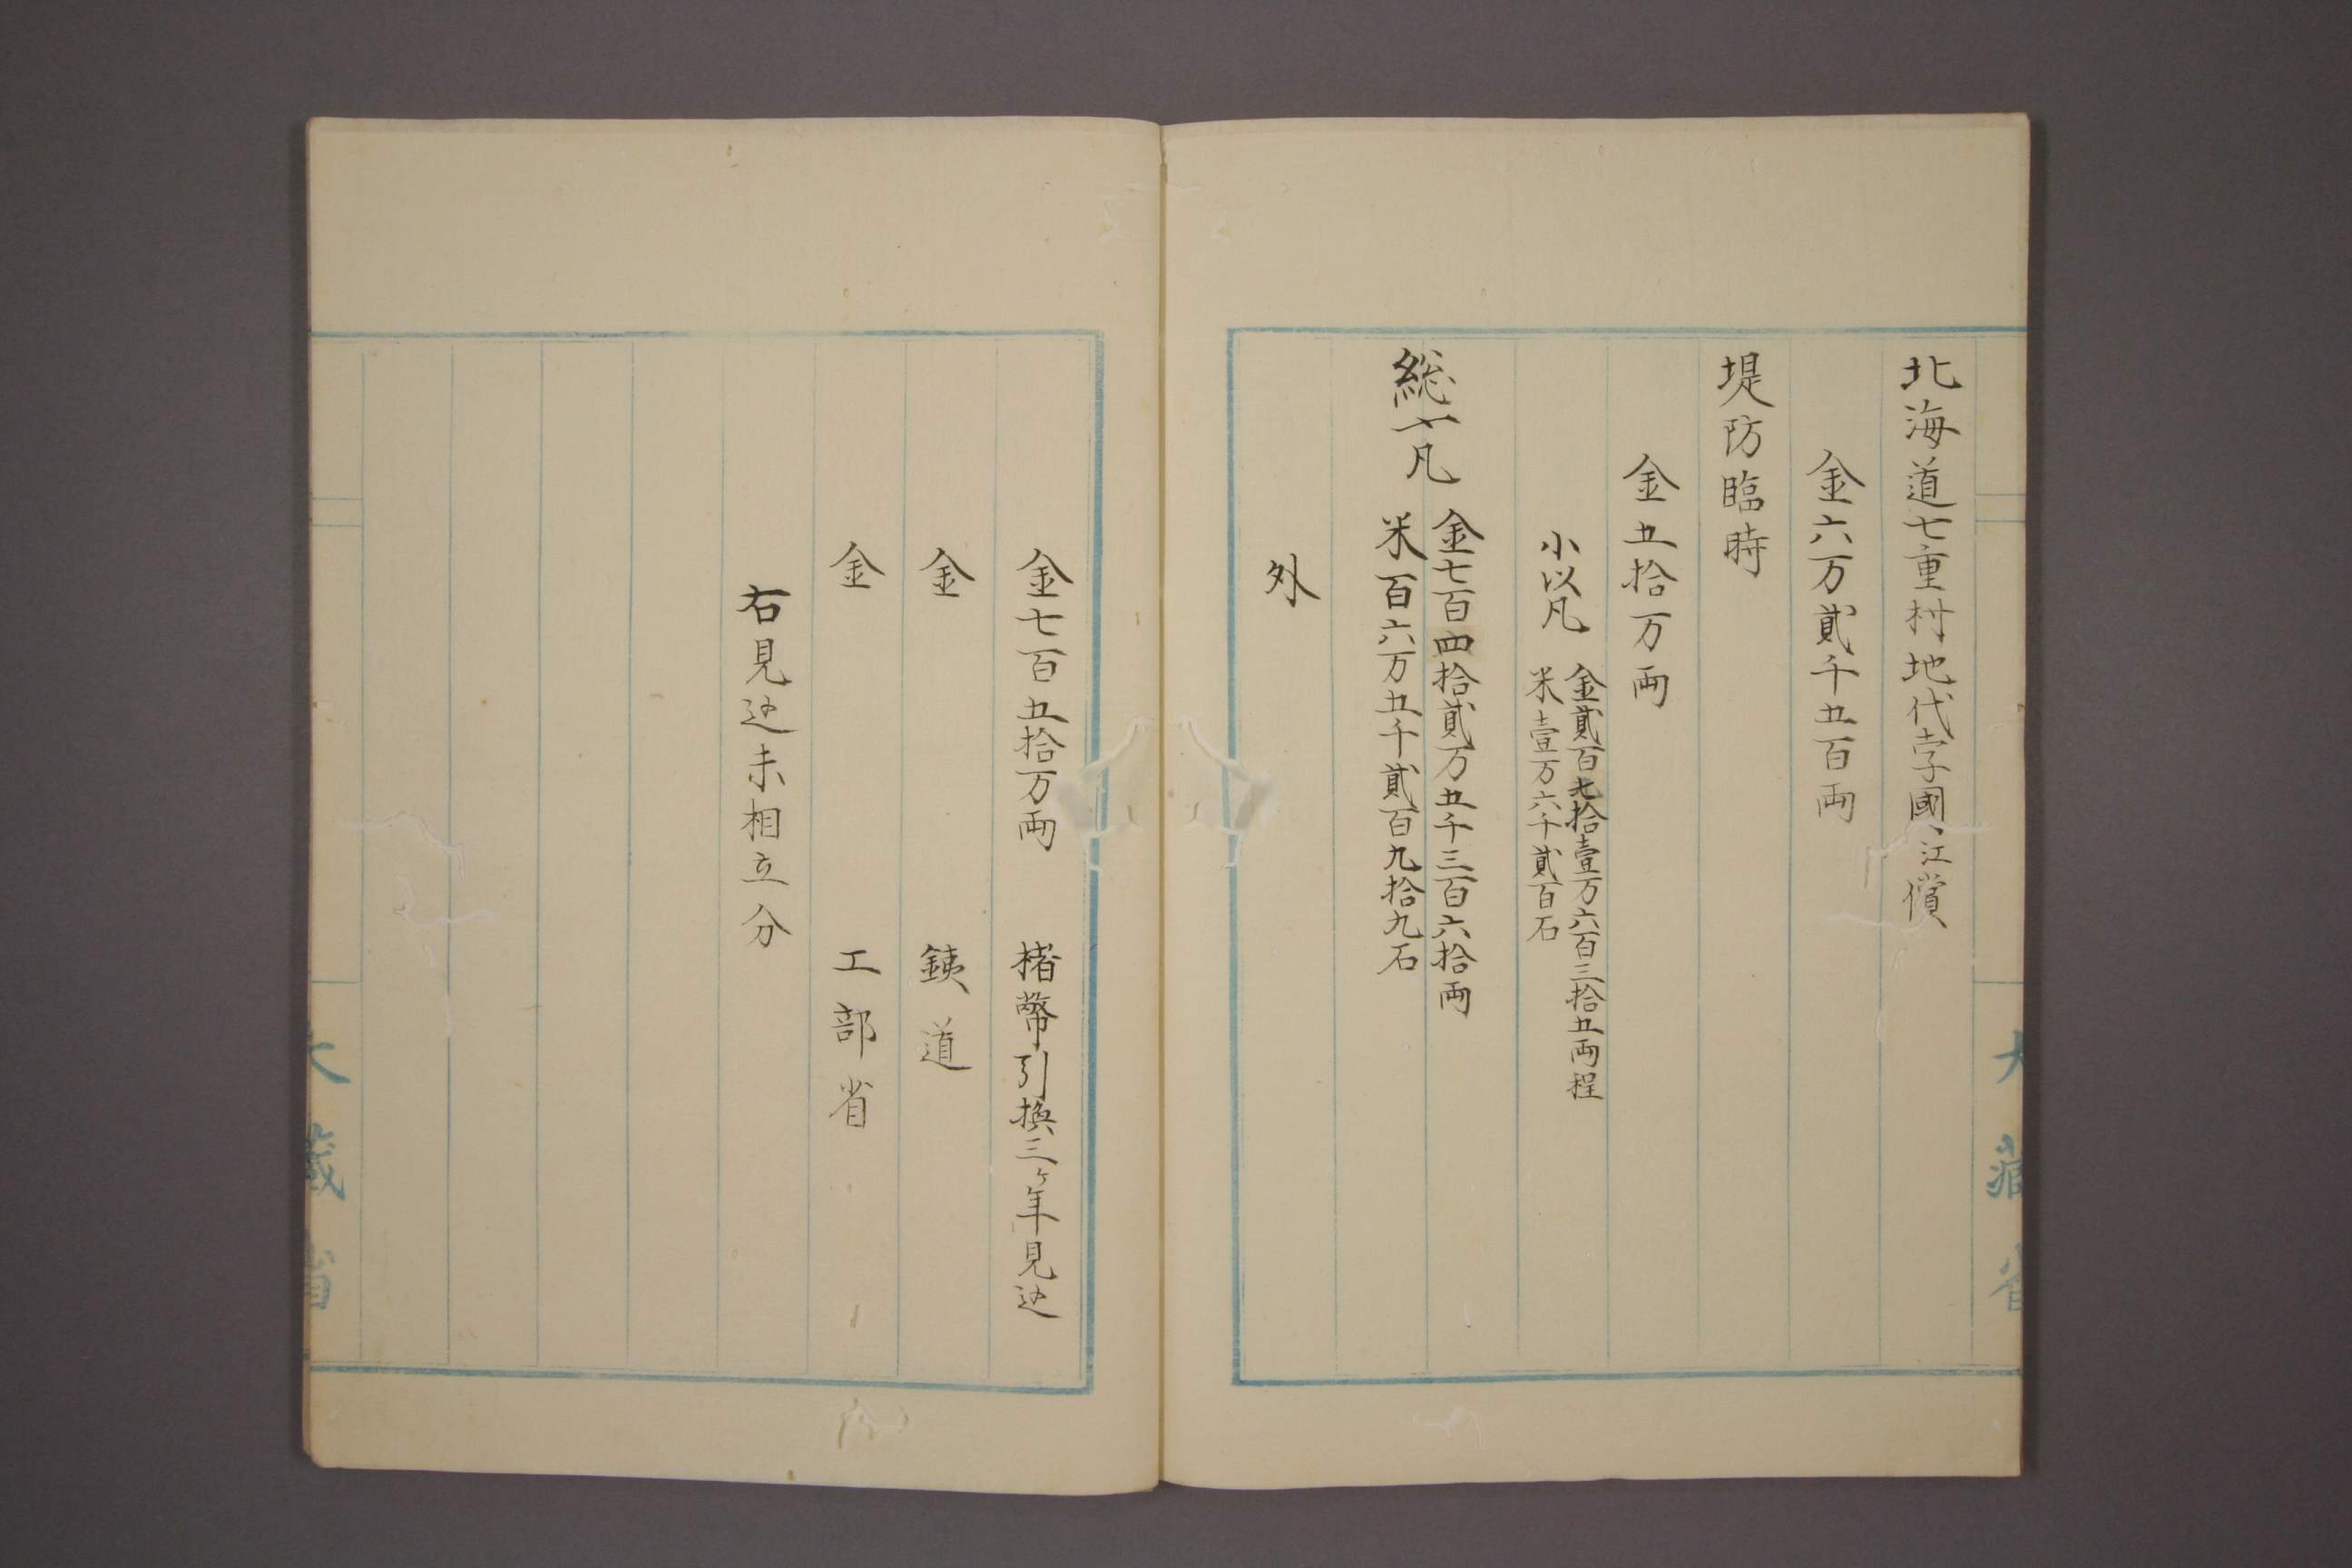 北海道七重村地代孛國江償
金六万貳千五百両
堤防臨時
金五拾万両
小以凡
金貳百七拾壹万六百三拾五両程
米壹万六千貳百石
総〆凡
金七百四拾貳万五千三百六拾両
米百六万五千貳百九拾九石
外
大藏省
金七百五拾万両 楮幣引換三ヶ年見込
金 銕道
金 工部省
右見込未相立分
大藏省